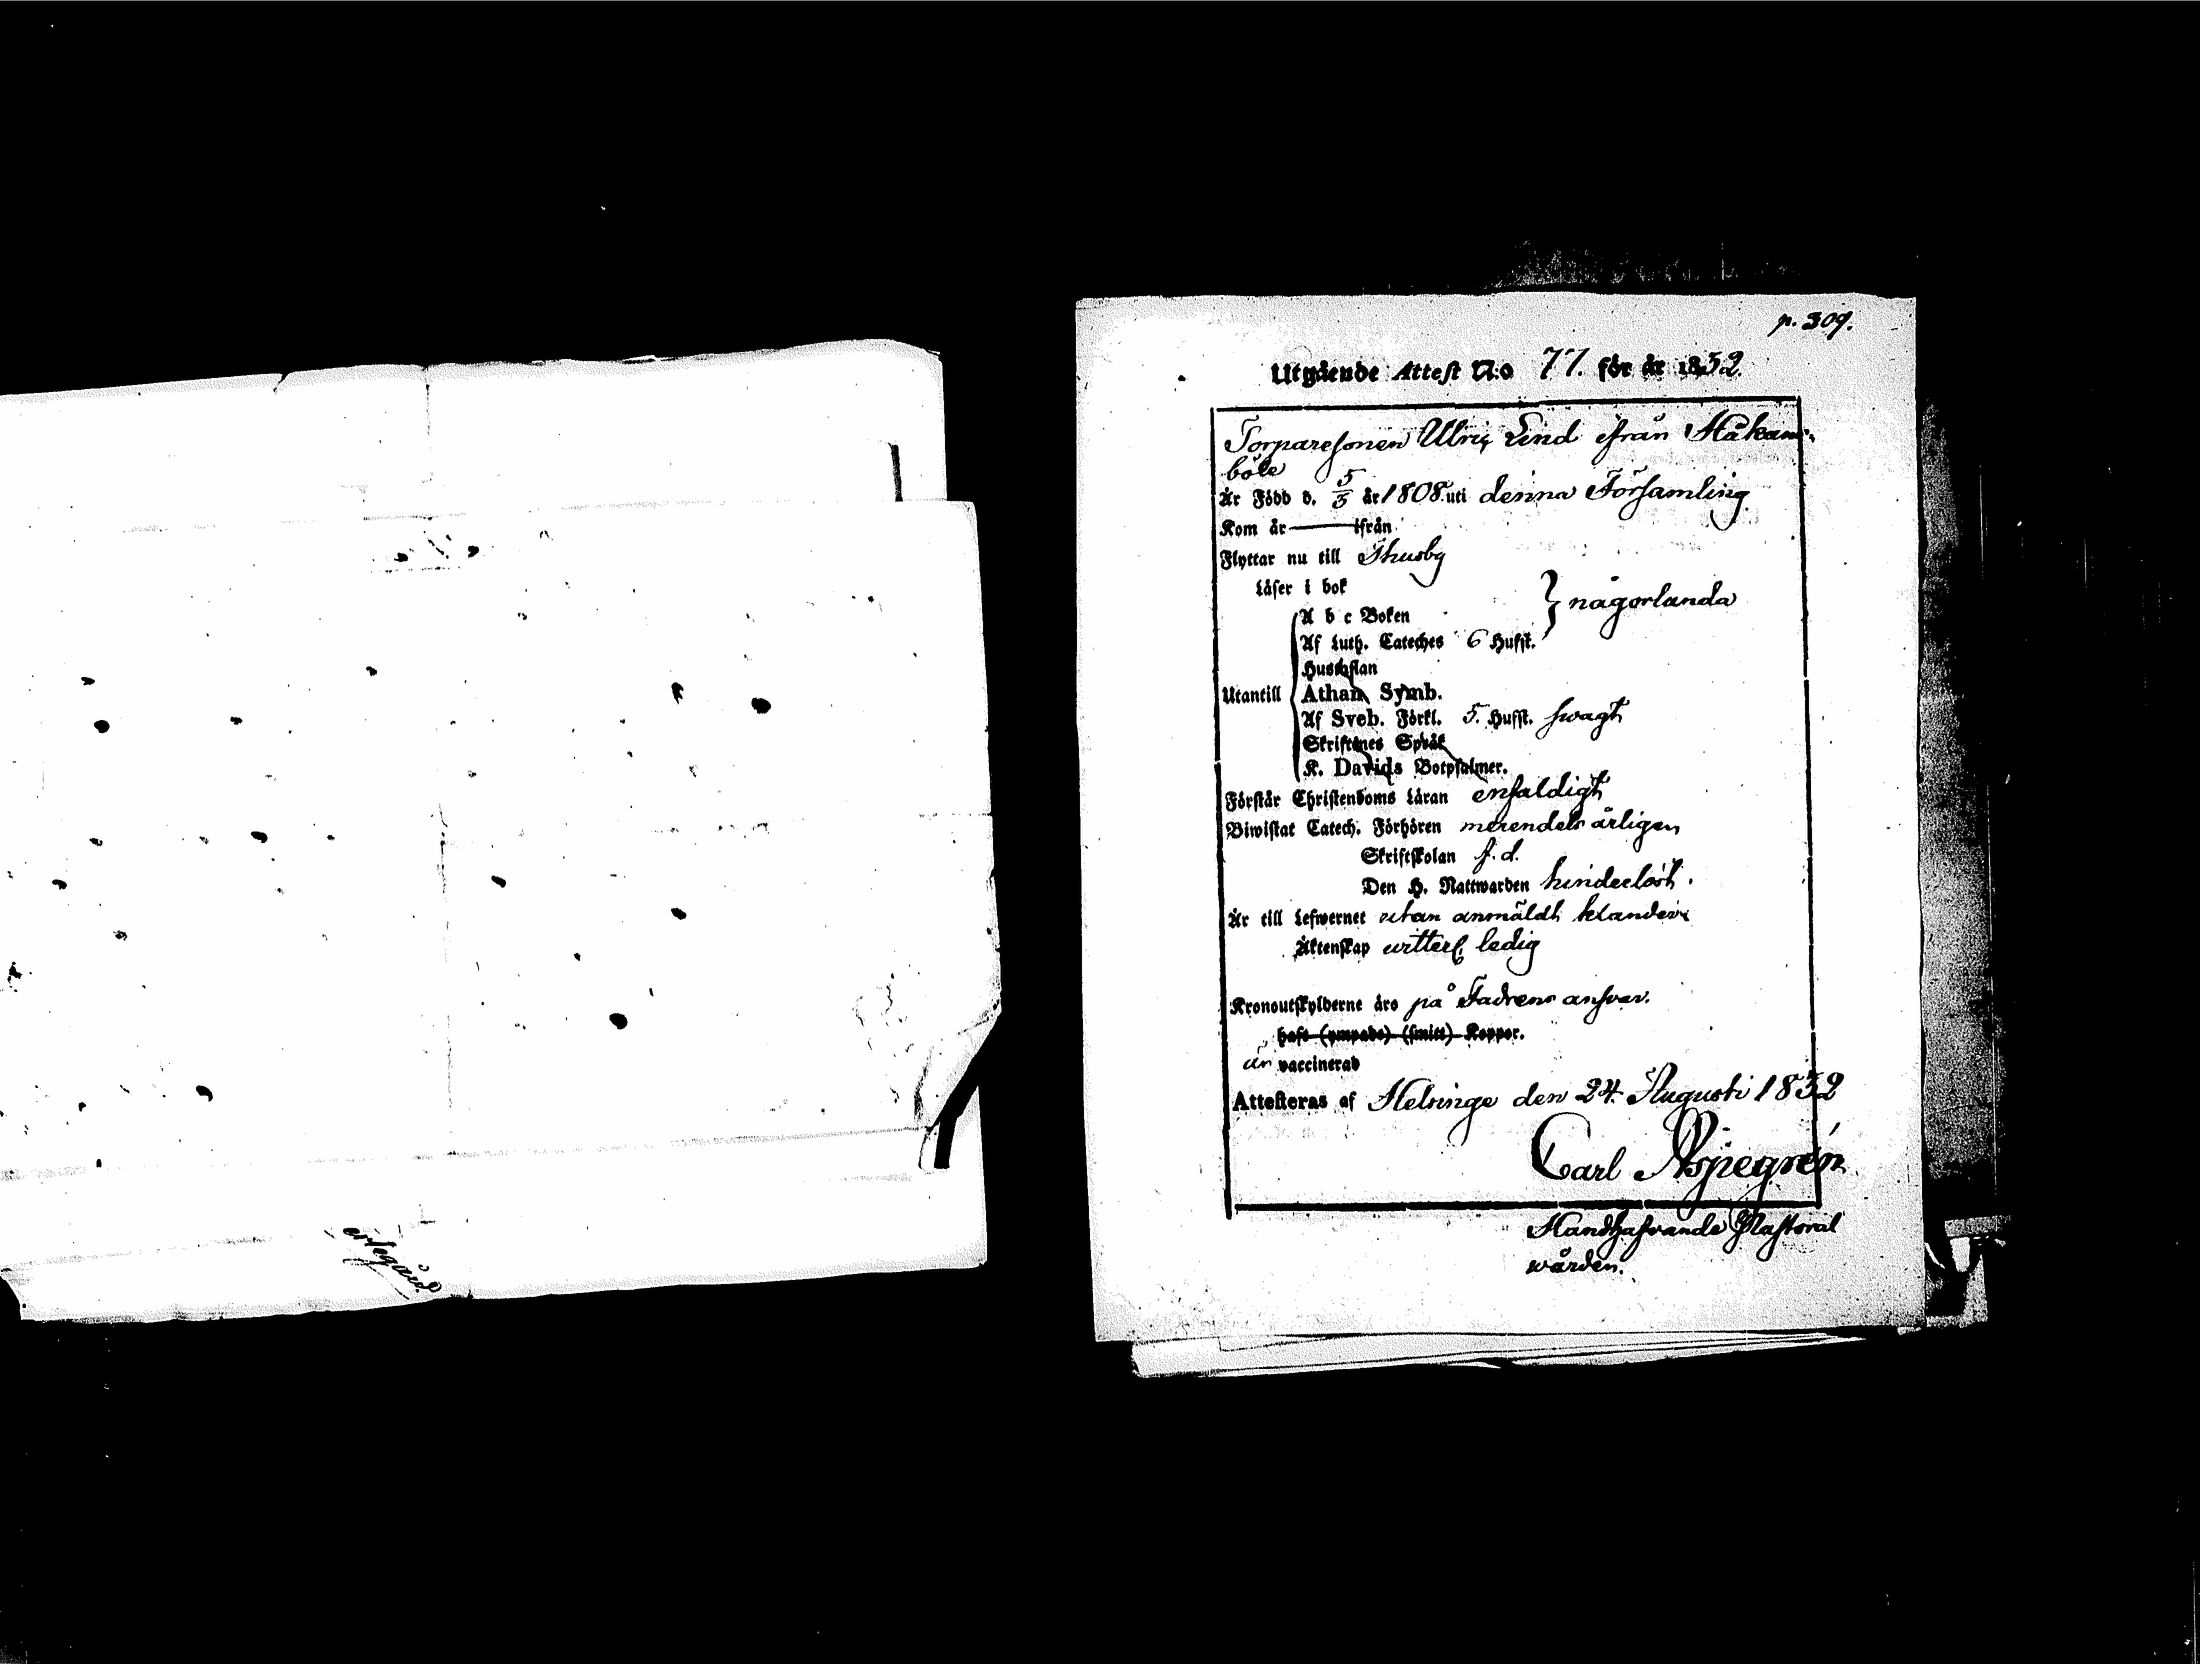 erlegård.
p. 309.
Utgående Attest N:o 77. för år 1832.
Torparesonen Ulric Lind ifrån Håkans-
böle
Är Född d. 5/3 år 1808. uti denna Församling
Kom år ifrån
Flyttar nu till Thusby
Läser i bok
A b c Boken } någorlunda
Af Luth. Cateches 6 Hufst.
Hustaflan
Utantill Athan. Symb.
Af Sveb. Förkl. 5. Hufst. swagt
Skriftenes Språk
K. Davids Botpsalmer.
Förstår Christendoms Läran enfaldigt
Biwistat Catech. Förhören merendels årligen
Skriftskolan f. d.
Den H. Nattwarden hinderlöst.
Är till Lefwernet utan anmäldt klander
Äktenskap ledig
Kronoutskylderne äro på Fadrens answar.
haft (ympade) (smitt) Koppor.
är vaccinerad
Attesteras af Helsinge den 24. Augusti 1832
Carl Aspegrén
Handhafvande Pastoral
wården.